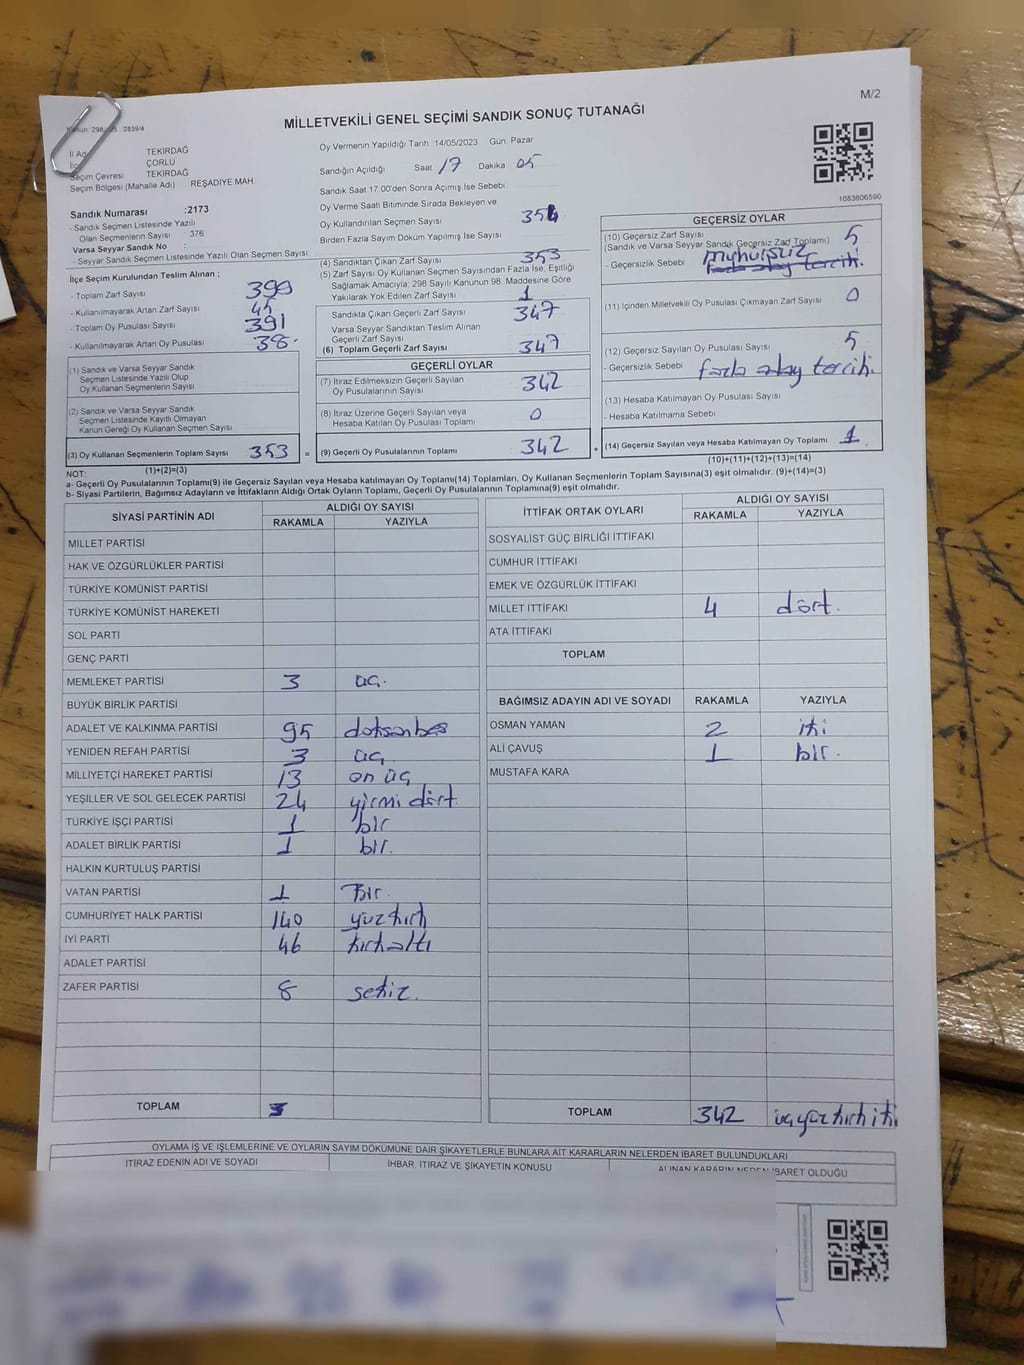 M/2
MİLLETVEKİLİ GENEL SEÇİMİ SANDIK SONUÇ TUTANAĞI
2839/4
TEKİRDAĞ
ÇORLU
Seçim Çevresi TEKİRDAĞ
Seçim Bölgesi (Mahalle Adı) REŞADİYE MAH.
Sandık Numarası :2173
- Sandık Seçmen Listesinde Yazılı
Olan Seçmenlerin Sayısı : 376
Varsa Seyyar Sandık No :
- Seyyar Sandık Seçmen Listesinde Yazılı Olan Seçmen Sayısı:
İlçe Seçim Kurulundan Teslim Alınan ;
- Toplam Zarf Sayısı 399
- Kullanılmayarak Artan Zarf Sayısı
- Toplam Oy Pusulası Sayısı 391
- Kullanılmayarak Artan Oy Pusulası 38.
(1) Sandık ve Varsa Seyyar Sandık
Seçmen Listesinde Yazılı Olup
Oy Kullanan Seçmenlerin Sayısı
(2) Sandık ve Varsa Seyyar Sandık
Seçmen Listesinde Kayıtlı Olmayan
Kanun Gereği Oy Kullanan Seçmen Sayısı
(3) Oy Kullanan Seçmenlerin Toplam Sayısı 353
(1)+(2)=(3)
Oy Vermenin Yapıldığı Tarih : 14/05/2023 Gün: Pazar
Sandığın Açıldığı Saat 17 Dakika 05
Sandık Saat 17:00'den Sonra Açımış İse Sebebi
Oy Verme Saati Bitiminde Sırada Bekleyen ve
Oy Kullandırılan Seçmen Sayısı 354
Birden Fazla Sayım Döküm Yapılmış İse Sayısı
(4) Sandıktan Çıkan Zarf Sayısı 353
(5) Zarf Sayısı Oy Kullanan Seçmen Sayısından Fazla İse, Eşitliği
Sağlamak Amacıyla; 298 Sayılı Kanunun 98. Maddesine Göre
Yakılarak Yok Edilen Zarf Sayısı 1
Sandıkta Çıkan Geçerli Zarf Sayısı 347
Varsa Seyyar Sandıktan Teslim Alınan
Geçerli Zarf Sayısı
(6) Toplam Geçerli Zarf Sayısı 347
GEÇERLİ OYLAR
(7) İtiraz Edilmeksizin Geçerli Sayılan
Oy Pusulalarının Sayısı 342
(8) İtiraz Üzerine Geçerli Sayılan veya
Hesaba Katılan Oy Pusulası Toplamı 0
= (9) Geçerli Oy Pusulalarının Toplamı 342
1083606590
GEÇERSİZ OYLAR
(10) Geçersiz Zarf Sayısı 5
(Sandık ve Varsa Seyyar Sandık Geçersiz Zarf Toplamı)
- Geçersizlik Sebebi mühürsüz
(11) İçinden Milletvekili Oy Pusulası Çıkmayan Zarf Sayısı 0
(12) Geçersiz Sayılan Oy Pusulası Sayısı 5
- Geçersizlik Sebebi fazla aday tercihi.
(13) Hesaba Katılmayan Oy Pusulası Sayısı
- Hesaba Katılmama Sebebi
+ (14) Geçersiz Sayılan veya Hesaba Katılmayan Oy Toplamı 1
(10)+(11)+(12)+(13)=(14)
NOT:
a- Geçerli Oy Pusulalarının Toplamı(9) ile Geçersiz Sayılan veya Hesaba Katılmayan Oy Toplamı(14) Toplamları, Oy Kullanan Seçmenlerin Toplam Sayısına(3) eşit olmalıdır. (9)+(14)=(3)
b- Siyasi Partilerin, Bağımsız Adayların ve İttifakların Aldığı Ortak Oyların Toplamı, Geçerli Oy Pusulalarının Toplamına(9) eşit olmalıdır.
SİYASİ PARTİNİN ADI ALDIĞI OY SAYISI
RAKAMLA YAZIYLA
MİLLET PARTİSİ
HAK VE ÖZGÜRLÜKLER PARTİSİ
TÜRKİYE KOMÜNİST PARTİSİ
TÜRKİYE KOMÜNİST HAREKETİ
SOL PARTİ
GENÇ PARTİ
MEMLEKET PARTİSİ 3 üç.
BÜYÜK BİRLİK PARTİSİ
ADALET VE KALKINMA PARTİSİ 95 doksanbeş
YENİDEN REFAH PARTİSİ 3 üç
MİLLİYETÇİ HAREKET PARTİSİ 13 on üç
YEŞİLLER VE SOL GELECEK PARTİSİ 24 yirmi dört
TÜRKİYE İŞÇİ PARTİSİ 1 bir
ADALET BİRLİK PARTİSİ 1 bir.
HALKIN KURTULUŞ PARTİSİ
VATAN PARTİSİ 1 Bir.
CUMHURİYET HALK PARTİSİ 140 yüzkırk
İYİ PARTİ 46 kırkaltı
ADALET PARTİSİ
ZAFER PARTİSİ 8 sekiz.
TOPLAM
İTTİFAK ORTAK OYLARI ALDIĞI OY SAYISI
RAKAMLA YAZIYLA
SOSYALİST GÜÇ BİRLİĞİ İTTİFAKI
CUMHUR İTTİFAKI
EMEK VE ÖZGÜRLÜK İTTİFAKI
MİLLET İTTİFAKI 4 dört.
ATA İTTİFAKI
TOPLAM
BAĞIMSIZ ADAYIN ADI VE SOYADI RAKAMLA YAZIYLA
OSMAN YAMAN 2 iki
ALİ ÇAVUŞ 1 bir.
MUSTAFA KARA
TOPLAM 342 üçyüzkırkiki
OYLAMA İŞ VE İŞLEMLERİNE VE OYLARIN SAYIM DÖKÜMÜNE DAİR ŞİKAYETLERLE BUNLARA AİT KARARLARIN NELERDEN İBARET BULUNDUKLARI
İTİRAZ EDENİN ADI VE SOYADI İHBAR, İTİRAZ VE ŞİKAYETİN KONUSU ALINAN KARARIN NEDEN İBARET OLDUĞU